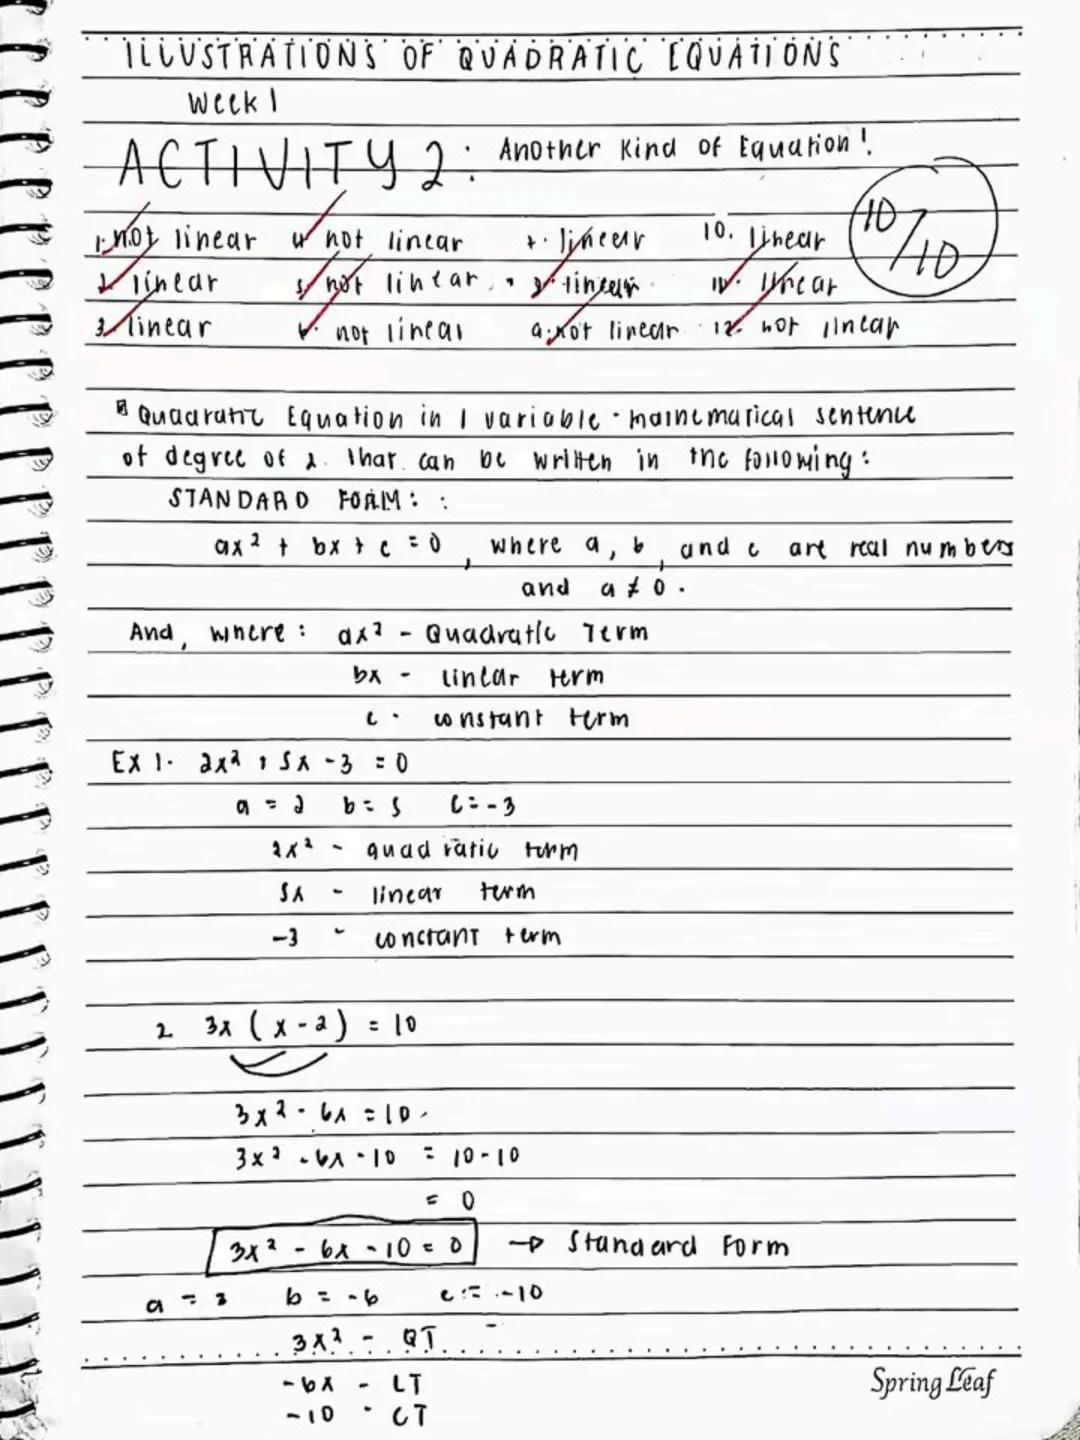 ILLUSTRATIONS OF QUADRATIC EQUATIONS
Week 1
ACTIVITY 2: Another Kind of Equation!
1. not linear 4. not linear 7. linear 10. linear 10/10
2. linear 5. not linear 8. linear 11. linear
3. linear 6. not linear 9. not linear 12. not linear
Quadratic Equation in 1 variable - mathematical sentence
of degree of 2 that can be written in the following:
STANDARD FORM:
ax² + bx + c = 0, where a, b, and c are real numbers
and a ≠ 0.
And, where: ax² - Quadratic Term
bx - linear term
c - constant term
Ex 1. 2x² + 5x - 3 = 0
a = 2 b = 5 c = -3
2x² - quadratic term
5x - linear term
-3 - constant term
2 3x (x - 2) = 10
3x² - 6x = 10
3x² - 6x - 10 = 10 - 10
= 0
3x² - 6x - 10 = 0 → Standard Form
a = 3 b = -6 c = -10
3x² - QT
-6x - LT
-10 - CT
Spring Leaf